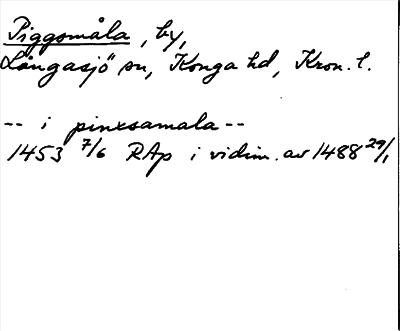 Piggsmåla, by,
Långasjö sn, Konga hd, Kron. l.
-- i pinxsamala --
1453 7/6 RAp i vidim. av 1488 29/1